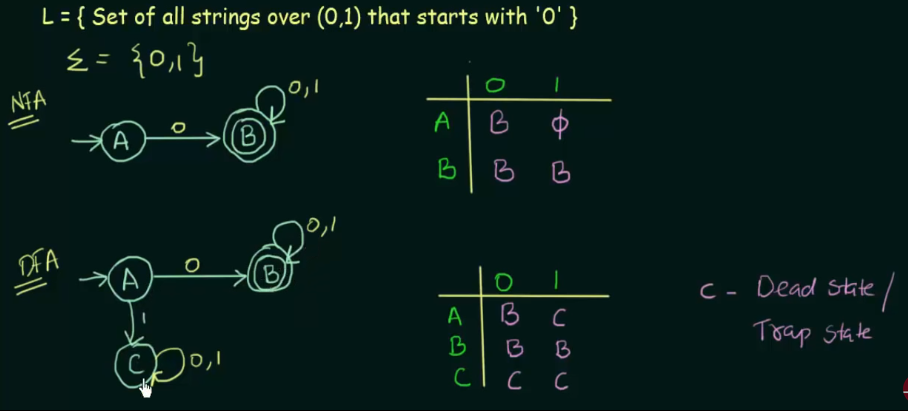 L = { Set of all strings over (0,1) that starts with '0' }
Σ = {0,1}
NFA
A 0 B 0,1
0 1
A B ϕ
B B B
DFA
A 0 B 0,1
1
C 0,1
0 1
A B C
B B B
C C C
C - Dead State/
Trap State